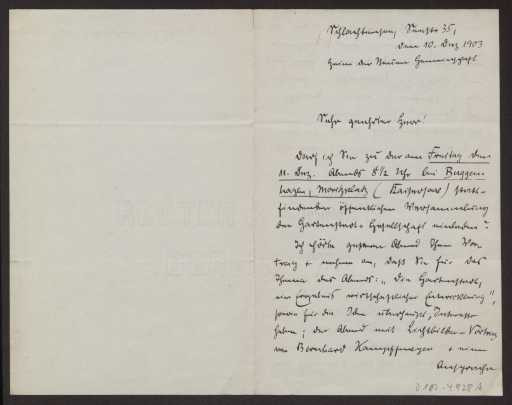 Schlachtensee, Seestr 35,
den 10. Dez 1903
Heim der Neuen Gemeinschaft
Sehr geehrter Herr!
Darf ich Sie zu der am Freitag den
11. Dez. Abends 8 1/2 Uhr bei Buggen-
hagen, Moritzplatz (Kaisersaal) statt-
findenden öffentlichen Versammlung
der Gartenstadt-Gesellschaft einladen?
Ich hörte gestern Abend Ihren Vor-
trag + nehme an, daß Sie für das
Thema des Abends: „Die Gartenstadt,
ein Ergebnis wirtschaftlicher Entwicklung",
sowie für die Idee überhaupt, Interesse
haben; der Abend mit Lichtbilder-Vortrag
von Bernhard Kampffmeyer + einer
Ansprache